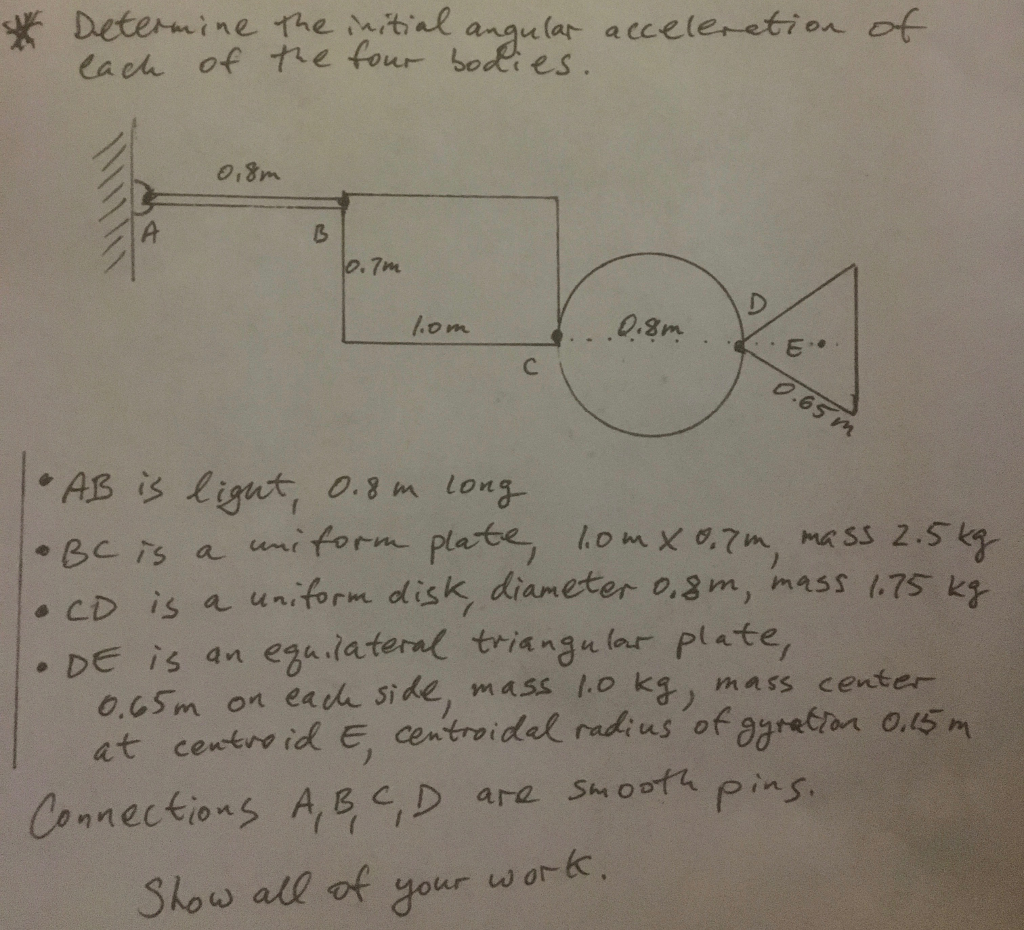 * Determine the initial angular acceleration of
each of the four bodies.
0.8m
A
B
0.7m
1.0m
C
0.8m
D
E
0.65m
• AB is light, 0.8 m long
• BC is a uniform plate, 1.0m X 0.7m, mass 2.5 kg
• CD is a uniform disk, diameter 0.8m, mass 1.75 kg
• DE is an equilateral triangular plate,
0.65m on each side, mass 1.0 kg, mass center
at centroid E, centroidal radius of gyration 0.15 m
Connections A, B, C, D are smooth pins.
Show all of your work.